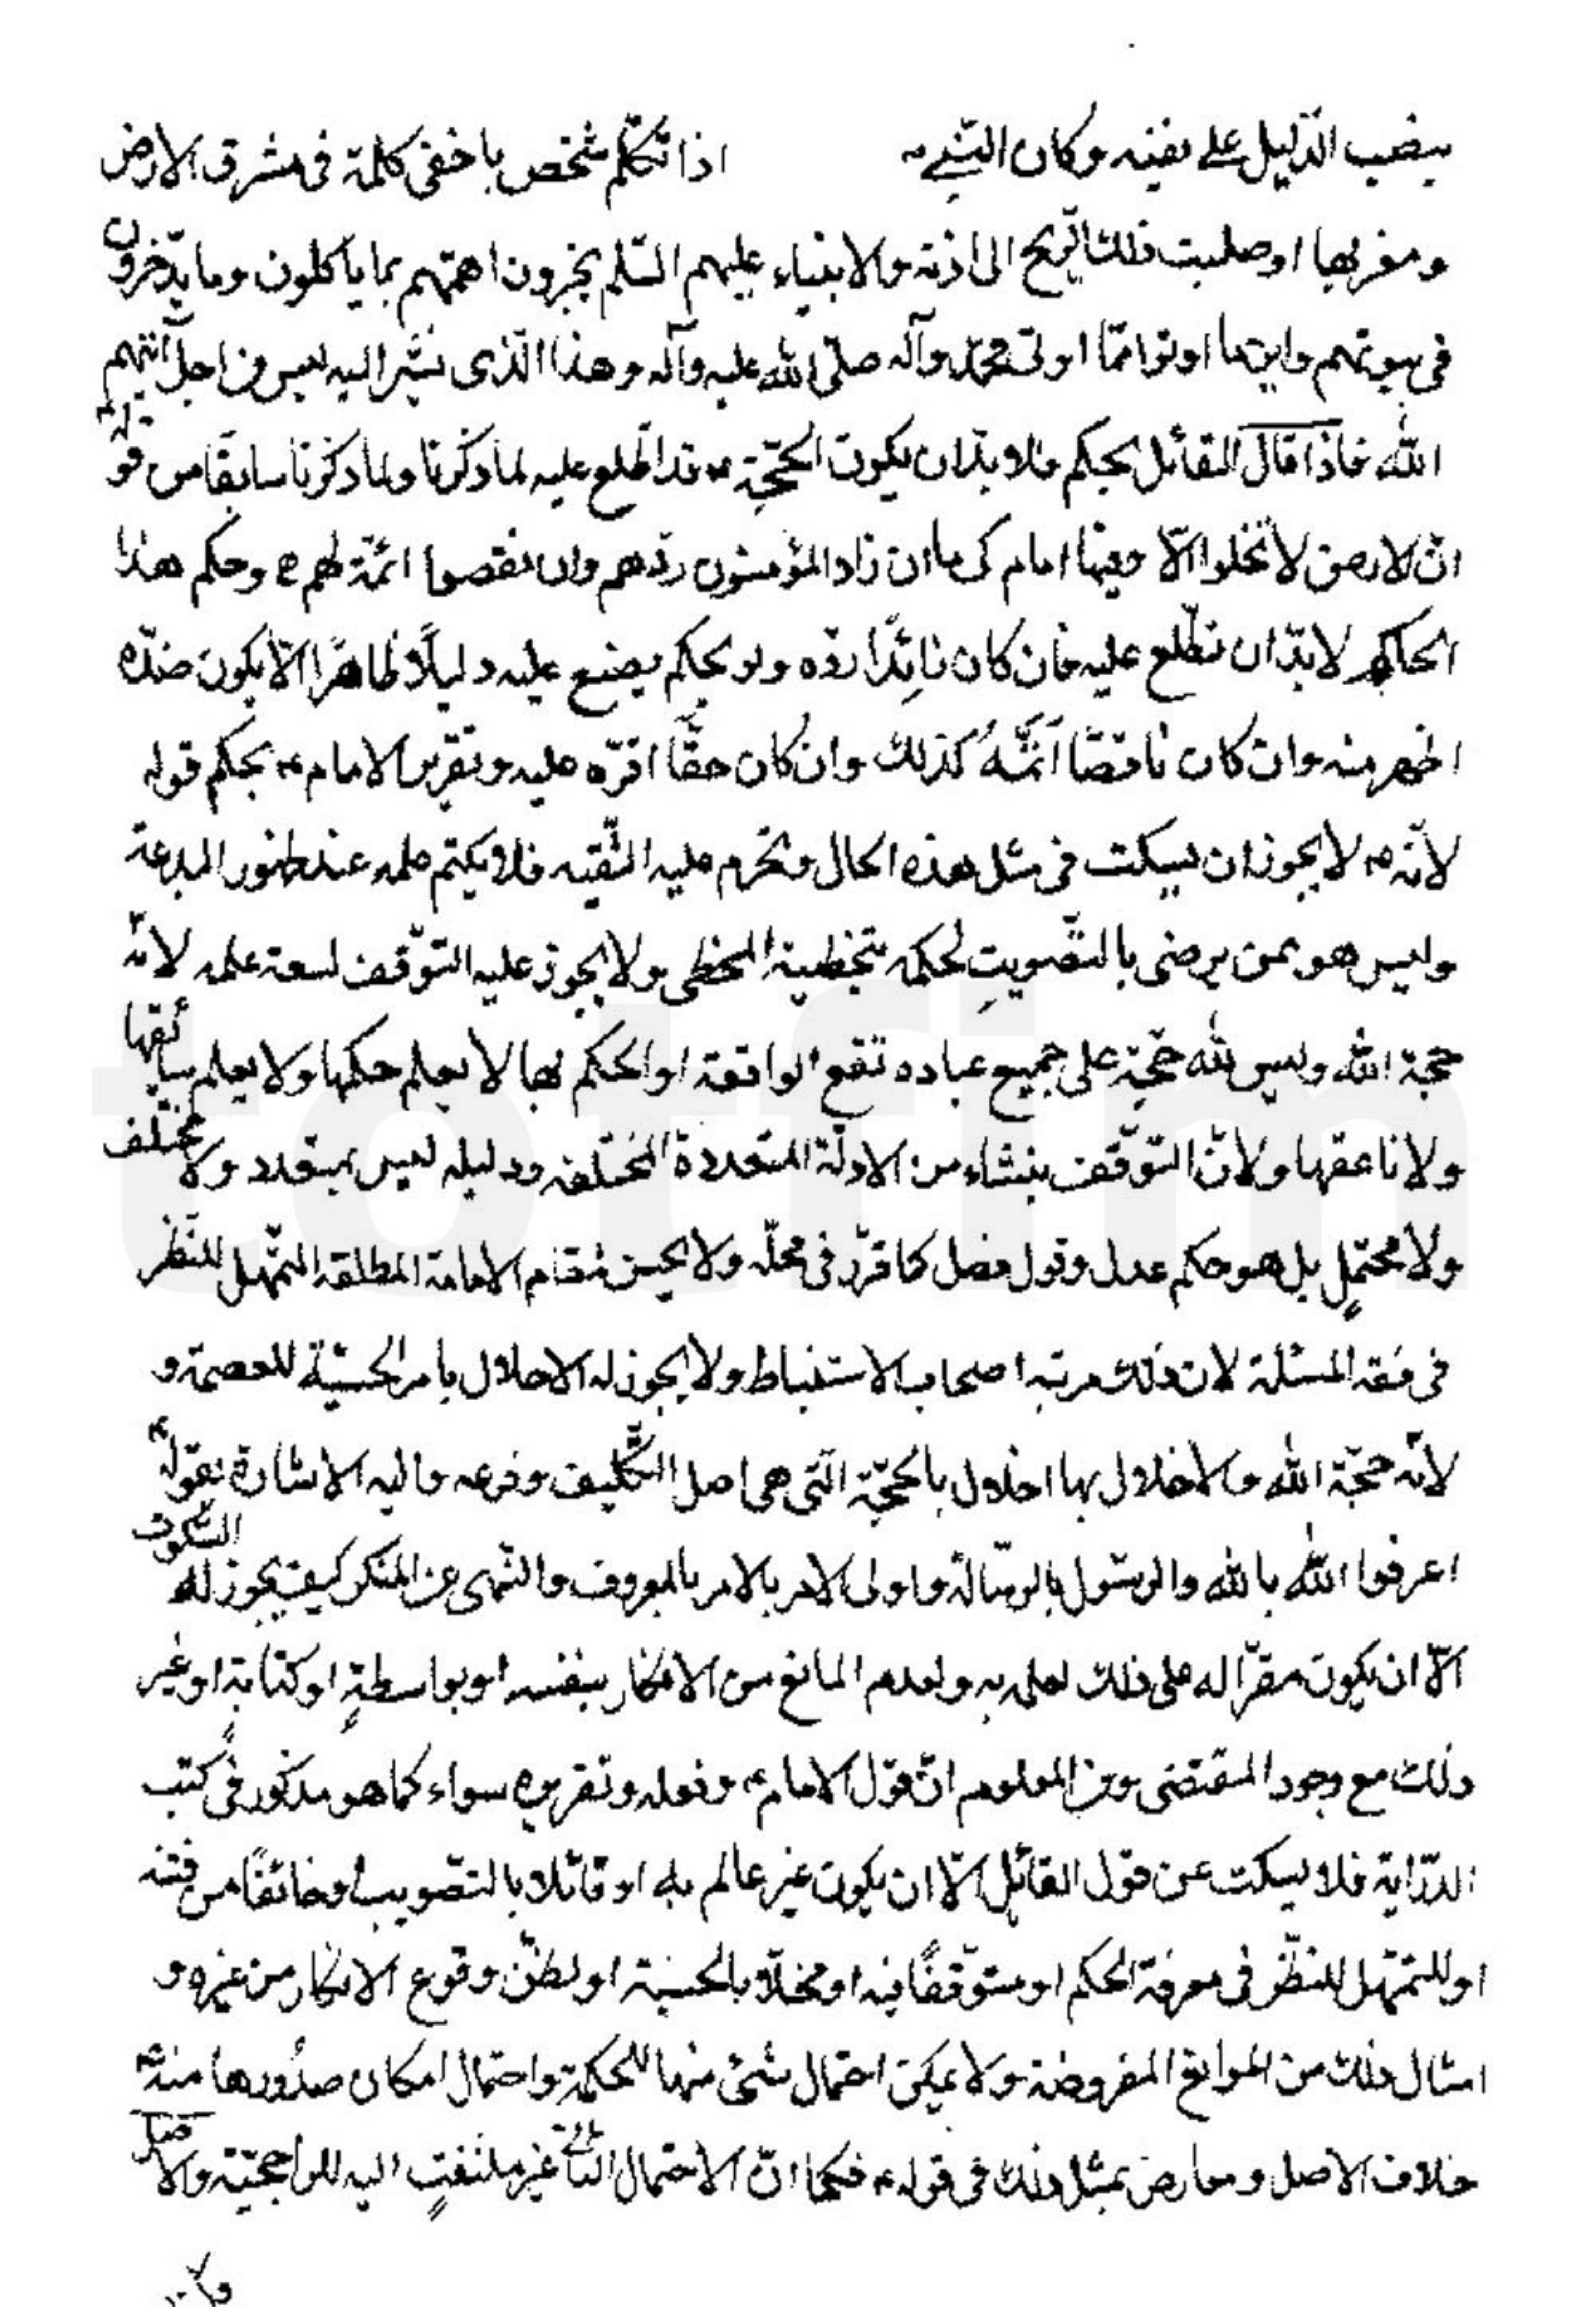 ينصب الدّليل على نفيه وكان النبي ص اذا تكلّم شخص باخفى كلمة فى مشرق الارض
ومغربها اوصلت تلك الريح الى اذنه والانبياء عليهم السّلم يخبرون اممهم بما ياكلون وما يدّخرون
فى بيوتهم واين ما اوتوا ممّا اوتى محمّد وآله صلّى الله عليه وآله وهذا الّذى نشير اليه ليس من اجل آيتهم
الله فاذا قال القائل بحكم فلا بدّ ان يكون الحجّة ع قد اطّلع عليه لما ذكرنا ولما ذكرنا سابقًا من قوله
انّ الارض لا تخلوا الّا وفيها امام كى ما ان زاد المؤمنون ردّهم وان نقصوا اتمّه لهم ع وحكم هذا
الحاكم لا بدّ ان تطّلع عليه فان كان زائدًا ردّه ولو بحكم يضع عليه دليلًا ظاهرًا الّا يكون ضدّه
اظهر منه وان كان ناقصًا اَتَمَّهُ كذلك وان كان حقًّا اقرّه عليه وتقرير الامام ع بحكم قوله
لانّه ع لا يجوز ان يسكت فى مثل هذه الحال وتحرم عليه التّقيه فلا يكتم علمه عند ظهور البدعة
وليس هو بمن يرضى بالتّصويبِ لحكمه بتخطيئة المخطى ولا يجوز عليه التوّقف لسعة علمه لانّه
حجة الله وليس لله حجّة على جميع عباده تقع الواقعة او الحكم بها لا يعلم حكمها ولا يعلم سائقها
ولا ناعقها ولانّ التوّقف ينشاء من الادلّة المتعددة المختلفه ودليله ليس بمتعدد ولا مختلف
ولا محتملٍ بل هو حكم عدل وقول فصل كما قرّر فى محلّه ولا يحسن لمقام الامامة المطلقة التّمهل للنّظر
فى فقه المسئلة لان ذلك مرتبه اصحاب الاستنباط ولا يجوز له الاخلال بامر الحسبيّة للعصمة و
لانّه حجّة الله والاخلال بها اخلال بالحجّة الّتى هى اصل التّكليف وفرعه واليه الاشارة بقوله ع
اعرفوا الله بالله والرسّول بالرسّالة واولى الامر بالامر بالمعروف والنّهى عن المنكر كيف يجوز له السّكوت
الّا ان يكون مقرّا له على ذلك لعلمه به ولعدم المانع من الانكار بنفسه او بواسطةٍ او كتابةٍ او غير
ذلك مع وجود المقتضى ومن المعلوم انّ قول الامام ع وفعله وتقريره سواء كما هو مذكور فى كتب
الدّراية فلا يسكت عن قول القائل الّا ان يكون غير عالم به او قائلا بالتّصويب او خائفًا من فتنه
او للتمّهل للنظّر فى معرفة الحكم او متوّقفًا فيه او مخلّا بالحسبة او لظنّ وقوع الانكار من غيره و
امثال ذلك من الموانع المفروضة ولا يمكن احتمال شئ منها للحكمة واحتمال امكان صدُورها منه ع
خلاف الاصل ومعارض بمثل ذلك فى قوله ع فكما انّ الاحتمال الثانى غير ملتفتٍ اليه للراجحيّة والاصل
ولا